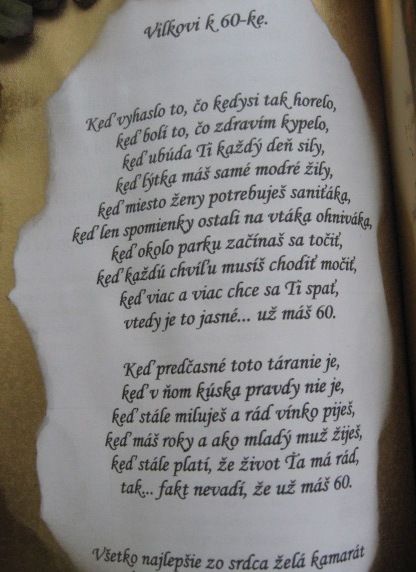 Vilkovi k 60-ke.
Keď vyhaslo to, čo kedysi tak horelo,
keď bolí to, čo zdravím kypelo,
keď ubúda Ti každý deň sily,
keď lýtka máš samé modré žily,
keď miesto ženy potrebuješ saniťáka,
keď len spomienky ostali na vtáka ohniváka,
keď okolo parku začínaš sa točiť,
keď každú chvíľu musíš chodiť močiť,
keď viac a viac chce sa Ti spať,
vtedy je to jasné... už máš 60.
Keď predčasné toto táranie je,
keď v ňom kúska pravdy nie je,
keď stále miluješ a rád vínko piješ,
keď máš roky a ako mladý muž žiješ,
keď stále platí, že život Ťa má rád,
tak... fakt nevadí, že už máš 60.
Všetko najlepšie zo srdca želá kamarát